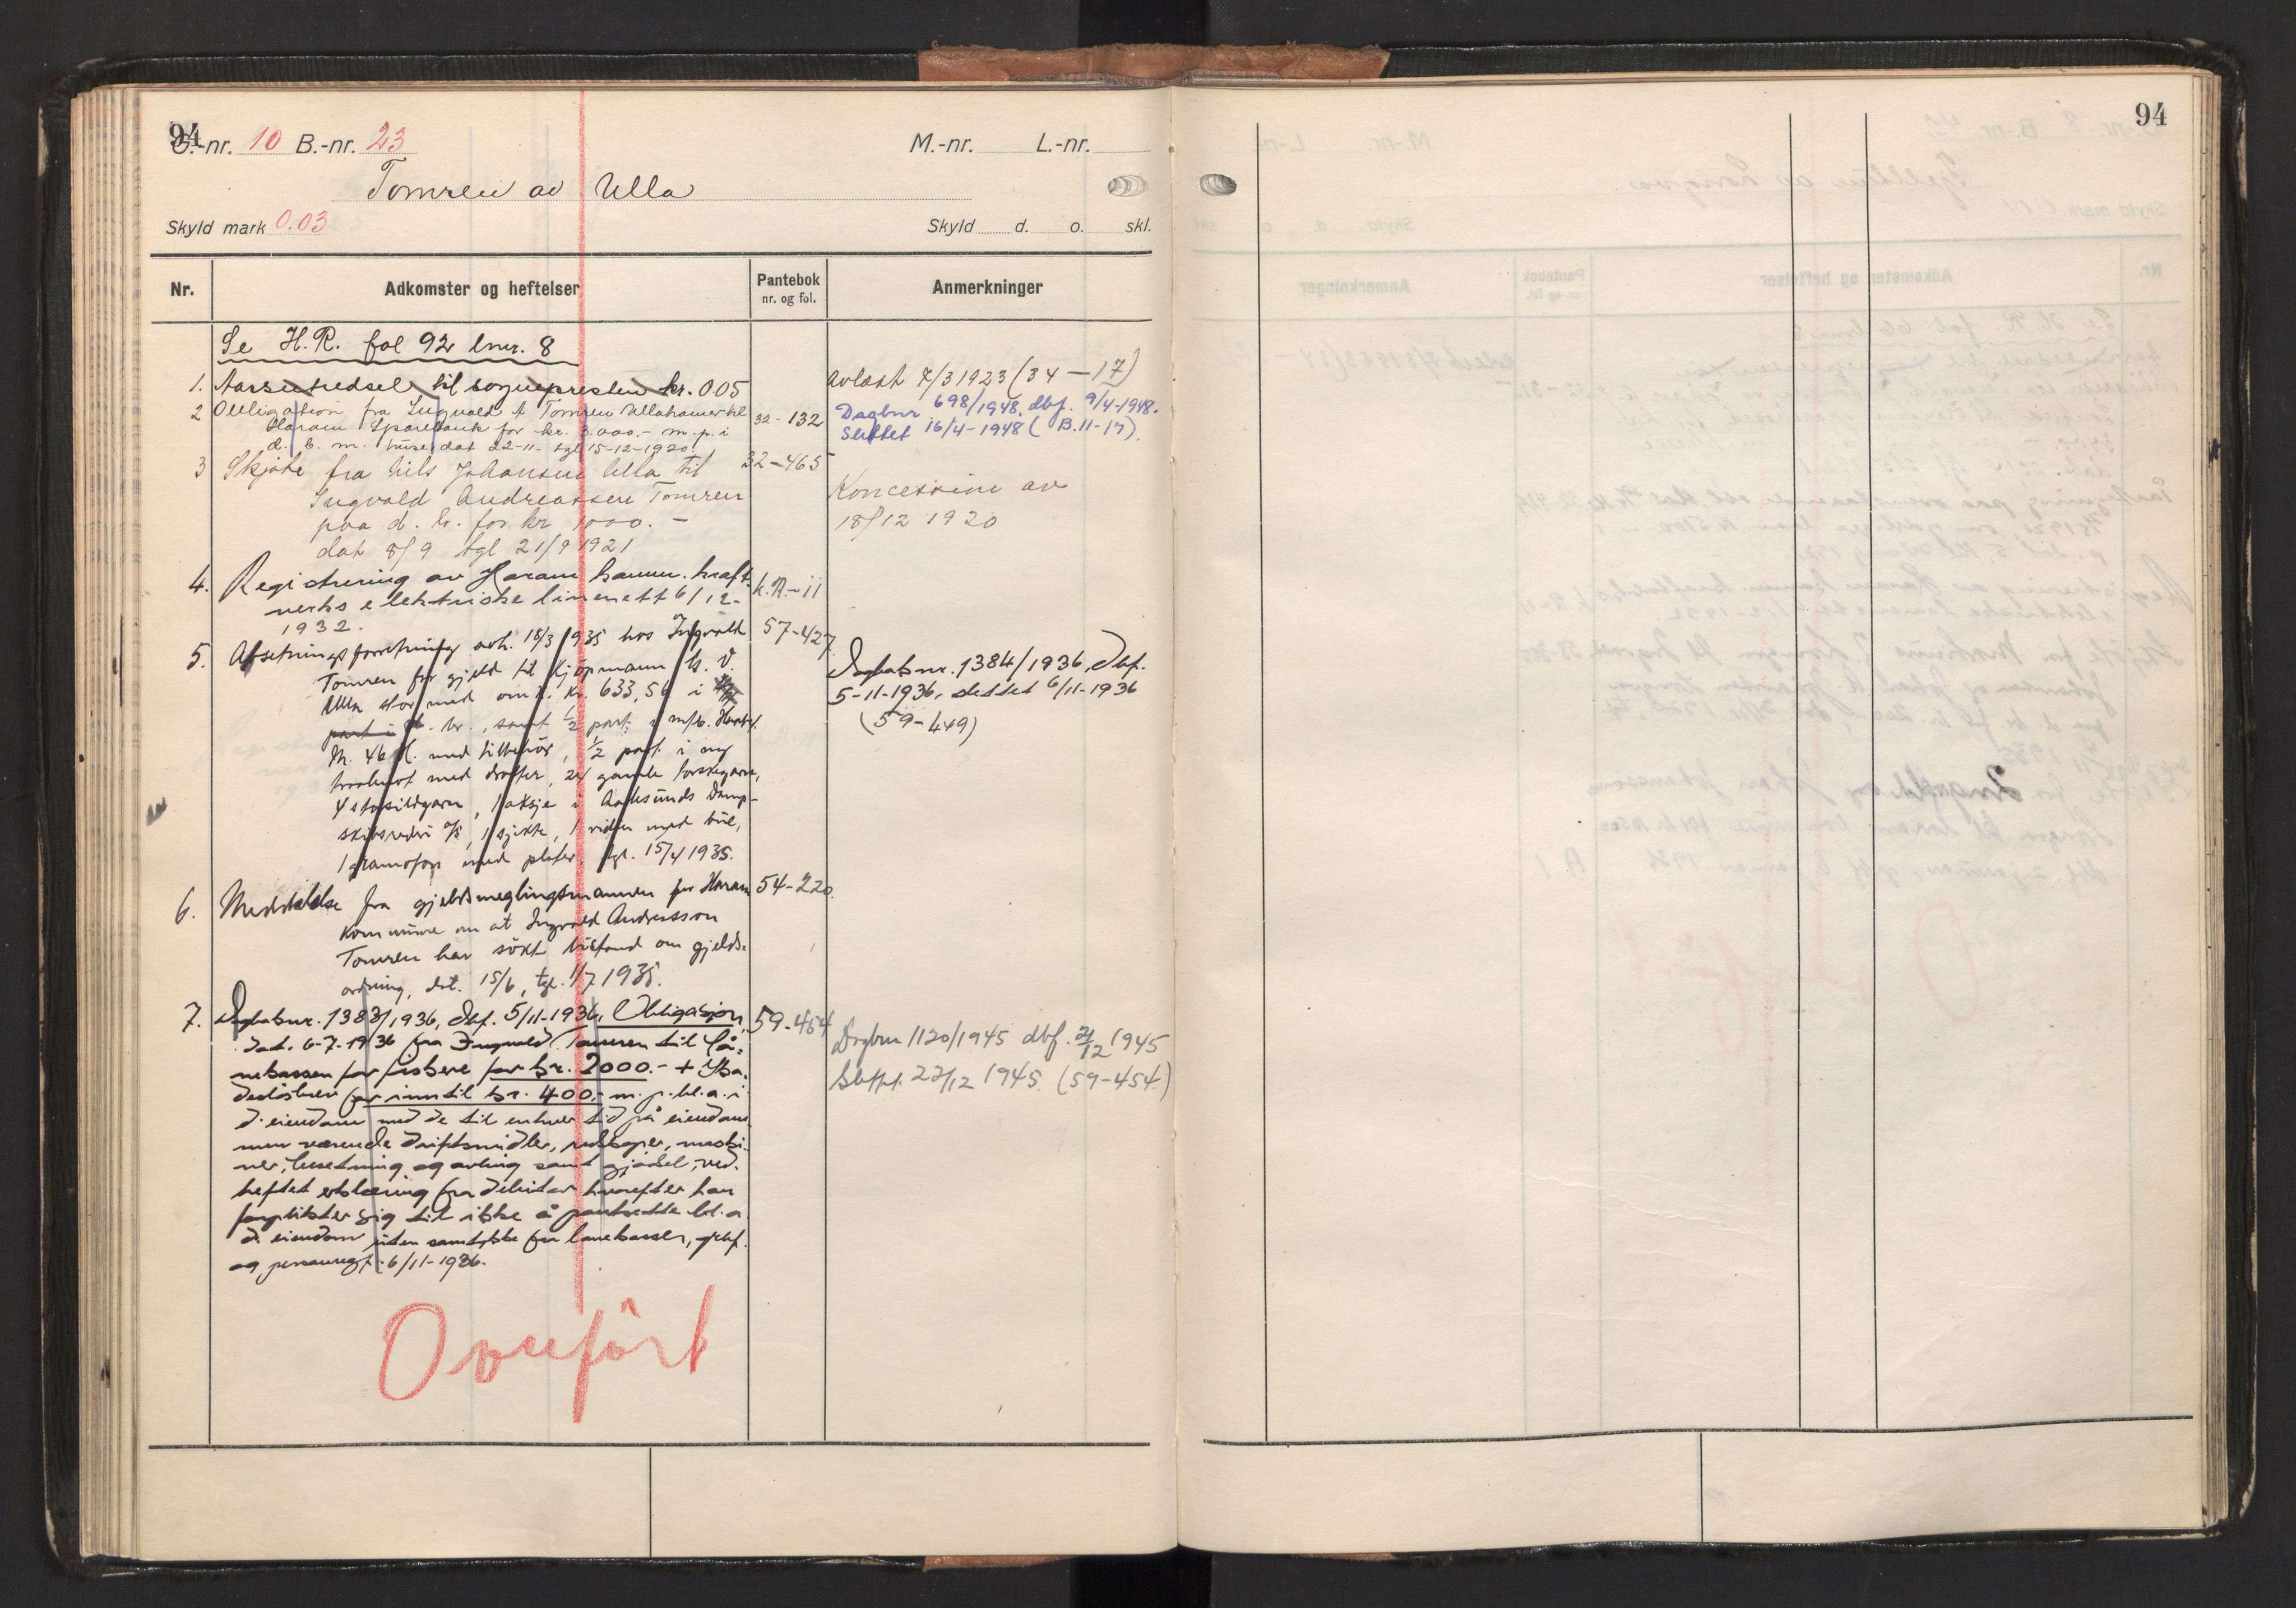 94
G.-nr. 10 B.-nr. 23 M.-nr. L.-nr.
Tomren av Ulla
Skyld mark 0.03 Skyld d. o. skl.
Nr. Adkomster og heftelser Pantebok nr. og fol. Anmerkninger
Se H.R. fol 92 lnr. 8
1. Aarsutredsel til sognepresten kr. 005 Avlöst 7/3 1923 (34-17)
2 Obligation fra Ingvald A Tomren Ullahammer til 32-132 Dagbnr 698/1948, dbf. 9/4-1948.
Haram Sparebank for kr. 3.000,- m. p. i Slettet 16/4-1948 (B.11-17).
d. b. m. huse, dat 22-11- tgl 15-12-1920
3 Skjøte fra Nils Johansen Ulla til 32-465
Ingvald Andreassen Tomren Koncession av
paa d. b. for kr 1000.- 18/12 1920
dat 8/9 tgl 21/9 1921
4. Registrering av Haram komm. kraft- k.R.-11
verks elektriske linenett 6/12-
1932.
5. Utsetningsforretning avh. 15/3 1935 hos Ingvald 57-427
Tomren for gjeld til Kjöpmann K. V. Dagboksnr. 1384/1936, Dbf.
Ulla stor med omk. kr. 633,56 i 5-11-1936, slettet 6/11-1936
part i d. br., samt 1/2 part i m/b. (59-449)
M. 46 H. med tilbehör, 1/2 part i ny
med drifter, 24 gamle torskegarn,
4 storsildgarn, 1 aksje i Aalesunds Damp-
skibsrederi A/S, 1 sjekte, 1 med
1 gramofon med plater, tgl. 15/4 1935.
6. Meddelelse fra gjeldsmeglingsmannen for Haram 54-220
kommune om at Ingvald Andreassen
Tomren har sökt bistand om gjelds-
ordning, dat. 15/6, tgl. 1/7 1935.
7. Dagboksnr. 1383/1936, Dbf. 5/11-1936, Obligasjon, 59-454
dat. 6-7-1936 fra Ingvald Tomren til Lå- Dagbnr 1120/1945 dbf. 21/12 1945
nekassen for fiskere for kr. 2000.- + Ska- Slettet 22/12 1945. (59-454.)
deslöshet for inntil kr. 400.- m. p. bl. a. i
d. eiendom med de til enhver tid på eiendom-
men værende driftsmidler, redskaper, maski-
ner, besetning og avling samt gjödsel, ved-
heftet erklæring fra debitor hvorefter han
forplikter sig til ikke å pantsette bl. a.
d. eiendom uten samtykke fra lånekassen,
og 6/11-1936.
Overfört
94